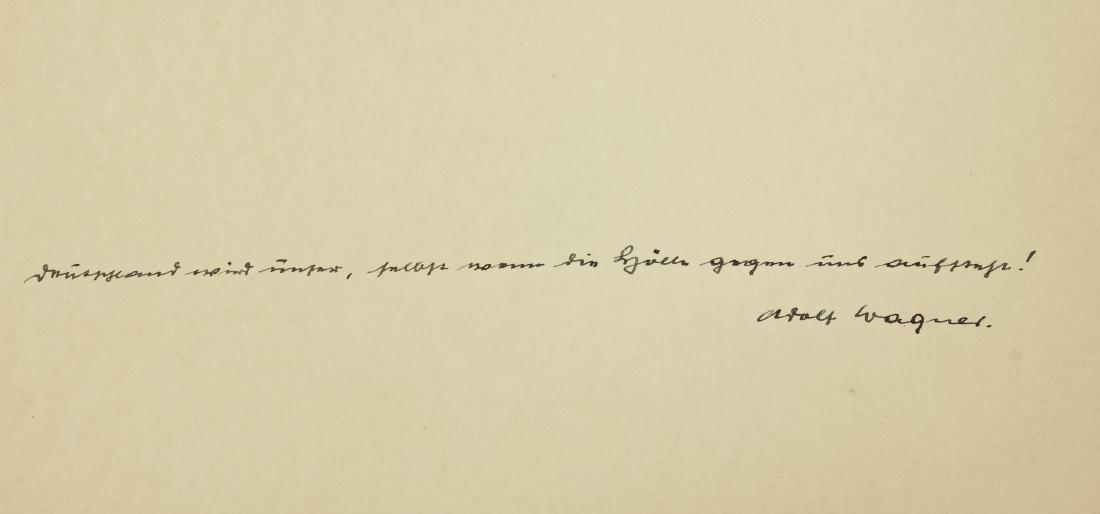 Deutschland wird unser, selbst wenn die Hölle gegen uns aufsteht!
Adolf Wagner.